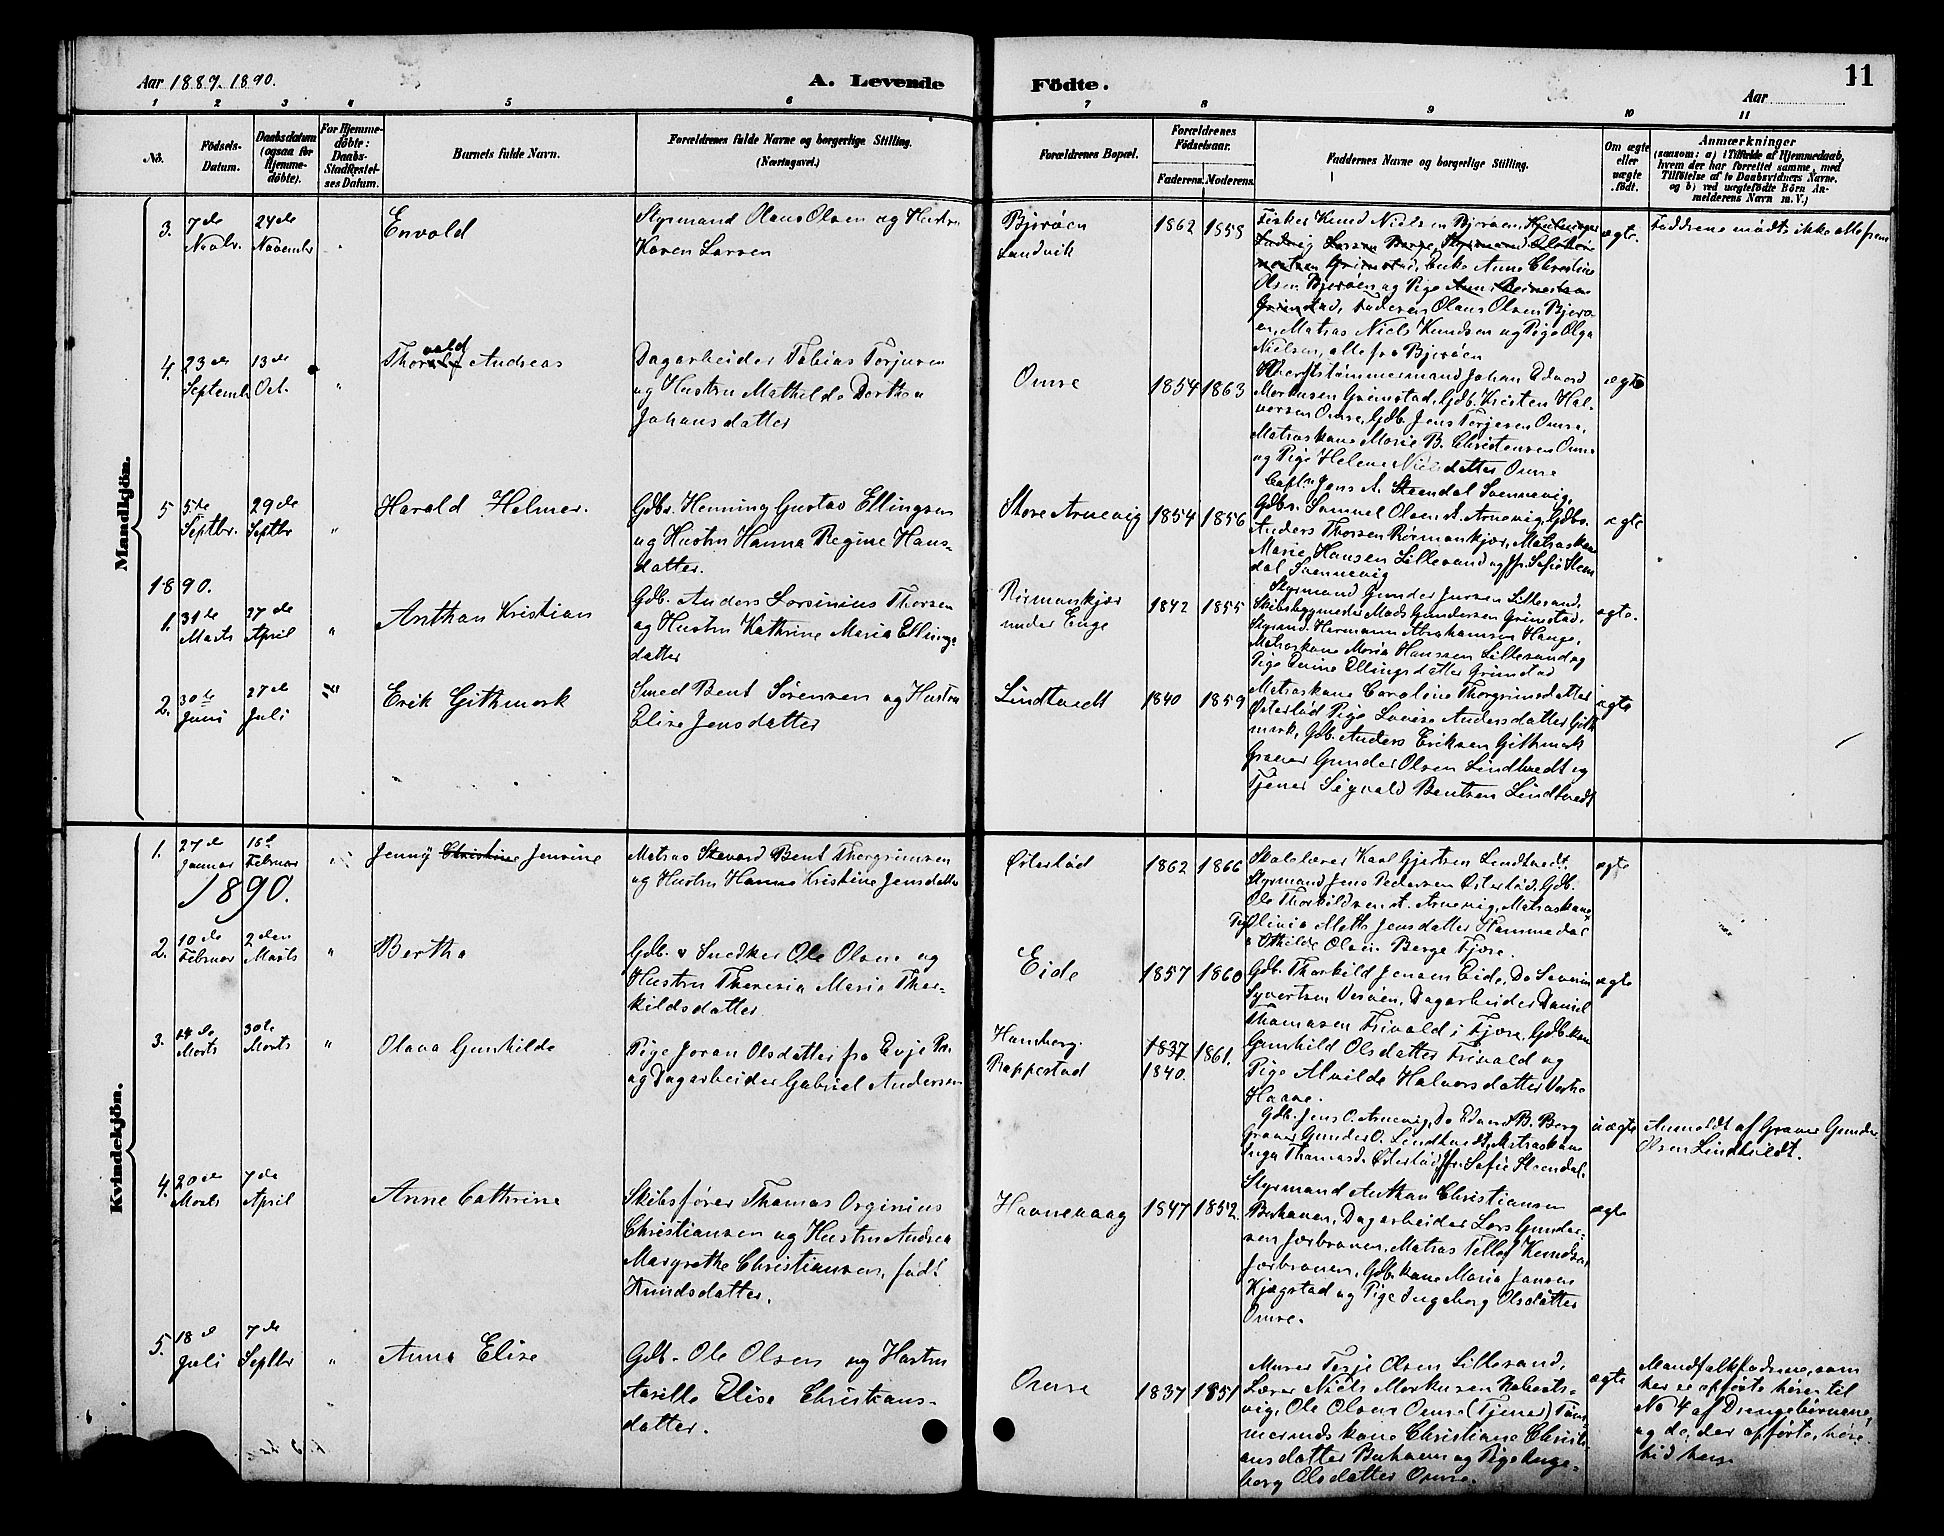 Aar 1889. 1890.
A. Levende
Födte.
Aar
11
1 2 3 4 5 6 7 8 9 10 11
No.
Födsels-
Datum.
Daabsdatum
(ogsaa for
Hjemme-
døbte).
For Hjemme-
döbte:
Daabs-
Stadfæstel-
ses Datum.
Barnets fulde Navn.
Forældrenes fulde Navne og borgerlige Stilling.
(Næringsvei.)
Forældrenes Bopæl.
Forældrenes
Födselsaar.
Faderens. Moderens.
Faddernes Navne og borgerlige Stilling.
Om ægte
eller
uægte
født.
Anmærkninger
(saasom: a) i Tilfælde af Hjemmedaab,
hvem der har forrettet samme, med
Tilföielse af to Daabsvidners Navne.
og b) ved uægtefödte Börn An-
melderens Navn m. V.)
Mandkjön.
3. 7de
Novbr.
24de
November
"
Envald
Styrmand Olaus Olsen og Hustru
Karen Larsen
Bjorøen
Landvik
1862 1858
Fisker Knud Nielsen Bjorøen,
Ludvig Larsen Berge, Styrmand
Grimstad, Enke Anne Christine
Olsen Bjorøen og Pige
Grimstad, Faderen Olaus Olsen Bjorø-
en, Matros Niels Knudsen og Pige Olga
Nielsen, alle fra Bjorøen
ægte.
Faddrene mødte ikke alle frem
4. 23de
Septembr
13de
Oct.
"
Thorvald Andreas
Dagarbeider Tobias Torjusen
og Hustru Mathilde Dorthea
Johansdatter
Omre
1854 1863
Værftstømmermand Johan Edvard
Mortensen Grimstad, Gdb. Kristen Hal-
vorsen Omre, Gdb. Jens Terjesen Omre,
Matroskone Marie B. Christensen Omre
og Pige Helene Nielsdatter Omre
ægte
5 5te
Septbr.
29de
Septbr
"
Harald Helmer.
Gdbr. Henning Gustav Ellingsen
og Hustru Hanna Regine Hans-
datter.
Store Arnevig
1854 1856
Capt. Jens A. Steendal Svennevig,
Gdbr. Samuel Olsen St. Arnevig, Gdbr.
Anders Thorsen Rørmankjær, Matroskone
Marie Hansen Lillesand og Jfr. Sofie Steen-
dal Svennevig
ægte
1890.
1. 31te
Marts
27de
April
"
Anthan Kristian
Gdb. Anders Larsinius Thorsen
og Hustru Kathrine Maria Ellings-
datter
Rørmankjær
under Enge
1842 1855
Styrmand Gunder Jensen Lillesand,
Skibsbygmester Mads Gundersen Grimstad,
Styrmd. Harmann Abrahamsen Hauge,
Matroskone Maria Hanssen Lillesand og
Pige Ellingsdatter Grimstad
ægte.
2. 30te
Juni
27de
Juli
"
Erik Githmark
Smed Bent Sørensen og Hustru
Elise Jensdatter
Lindtvedt
1840 1859
Matroskone Caroline Thorgrimsdatter
Østerlød Pige Lovise Andersdatter Gith-
mark, Gdb. Anders Eriksen Githmark
Graver Gunder Olsen Lindtvedt og
Tjener Sigvald Bentsen Lindtvedt
ægte
Kvindekjön.
1. 27de
Januar
16de
Februar
"
Jenny Christine Jensine
Matros Steward Bent Thorgrimsen
og Hustru Hanna Kristine Jensdatter
Østerlød
1862 1866
Skolelærer Karl Gjertsen Lindtvedt,
Styrmand Jens Pedersen Østerlød, Gdb.
Ole Thorkildsen St. Arnevig, Matroskone
Olivia Mathea Jensdatter Hammedal
Pige Othilde Olsen Berge Fjære.
ægte
1890.
2. 10de
Februar
2den
Marts
"
Bertha
Gdb. & Snedker Ole Olsen og
Hustru Theresia Maria Thor-
kildsdatter
Eide
1857 1860
Gdb. Thorkild Jensen Eide, Do Severin
Syvertsen Vesøen, Dagarbeider Daniel
Thomasen Trivald i Fjære, Gdb.kone
Gunhild Olsdatter Trivald og
Pige Alvilde Halvorsdatter Vestre
Haave.
ægte
3. 14de
Marts
30te
Marts
"
Olava Gunhilde
Pige Joran Olsdatter fra Evje Pr.
og Dagarbeider Gabriel Andersen
Hamberg.
Rappestad
1837 1861.
1840.
Gdb. Jens O. Arnevig, Do Edvard B. Berg
Graver Gunder O. Lindtvedt, Matroskone
Inga Thomasd. Østerlød Jfr. Sofie Steendal.
uægte
Anmeldt af Graver Gunder
Olsen Lindtvedt.
4. 20de
Marts
7de
April
Anne Cathrine
Skibsfører Thomas Orginius
Christiansen og Hustru Andrea
Margrethe Christiansen, født
Knudsdatter.
Havnevaag
1847 1852.
Styrmand Anthan Christiansen
Buhaven, Dagarbeider Lars Gunder-
sen Jærbraaen, Matros Tellef Knudsen
Jærbraaen, Gdb.kone Maria Jansen
Kjægstad og Pige Ingeborg Olsdatter
Omre.
ægte
5. 18de
Juli
7de
Septbr
"
Anna Elise
Gdb. Ole Olsen og Hustru
Aasille Elise Christians-
datter.
Omre
1837 1851
Murer Terje Olsen Lillesand,
Lærer Niels Markusen Roberts-
vig, Ole Olsen Omre (Tjener) Tøm-
mermandskone Christiane Christi-
ansdatter Buhaven og Pige Inge-
borg Olsdatter Omre.
ægte
Mandfolkfadrene, som
her er opførte hører til
No 4 af Drengebørnene,
og de, der opførte, hører
hid hen